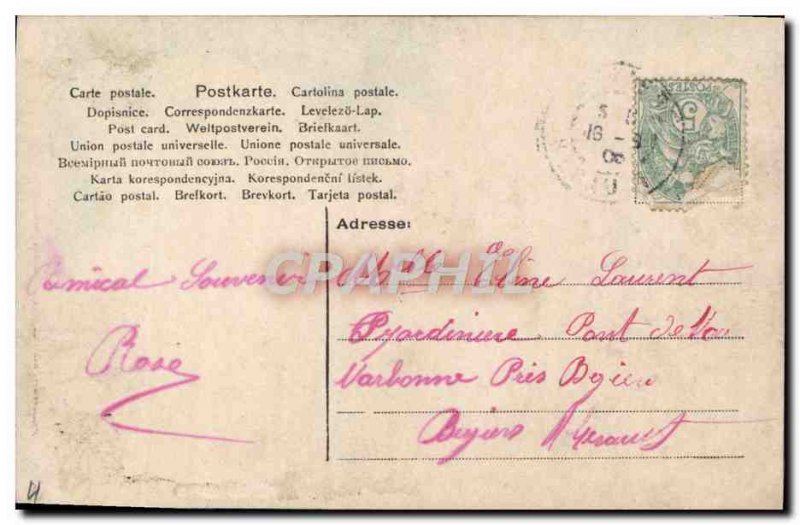 Carte postale. Postkarte. Cartolina postale.
Dopisnice. Correspondenzkarte. Levelező-Lap.
Post card. Weltpostverein. Briefkaart.
Union postale universelle. Unione postale universale.
Всемірный почтовый союзъ. Россія. Открытое письмо.
Karta korespondencyjna. Korespondenční lístek.
Cartão postal. Brefkort. Brevkort. Tarjeta postal.
POSTES
5
Adresse:
Amical Souvenir
Rose
Mlle Eline Laurent
Pont de
Narbonne Près
CPARAPHIL
4